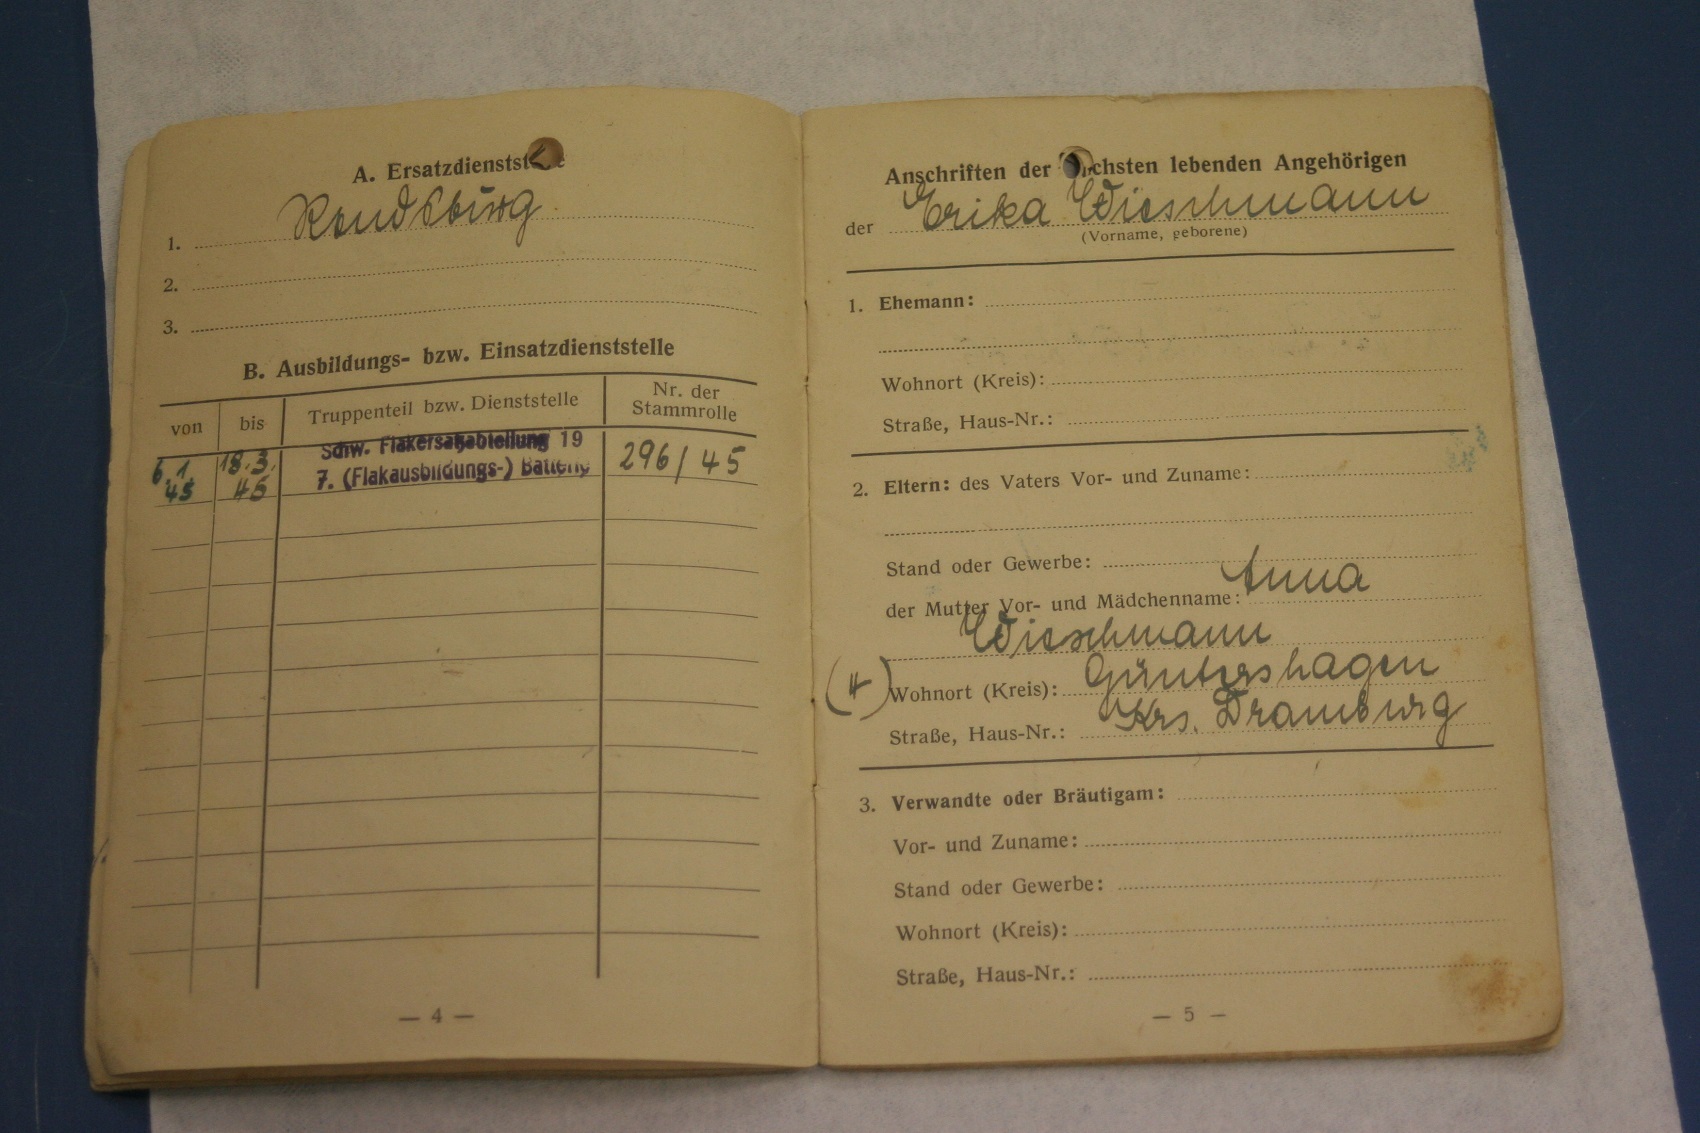 A. Ersatzdienststelle
1. Rendsburg
2.
3.
B. Ausbildungs- bzw. Einsatzdienststelle
von bis Truppenteil bzw. Dienststelle Nr. der Stammrolle
6.1. 45 18.3. 45 Schw. Flakersatzabteilung 19 296/45
7. (Flakausbildungs-) Batterie
— 4 —
Anschriften der nächsten lebenden Angehörigen
der Erika Wieschmann
(Vorname, geborene)
1. Ehemann:
Wohnort (Kreis):
Straße, Haus-Nr.:
2. Eltern: des Vaters Vor- und Zuname:
Stand oder Gewerbe:
der Mutter Vor- und Mädchenname: Anna
Wieschmann
(4) Wohnort (Kreis): Güntershagen
Straße, Haus-Nr.: Krs. Dramburg
3. Verwandte oder Bräutigam:
Vor- und Zuname:
Stand oder Gewerbe:
Wohnort (Kreis):
Straße, Haus-Nr.:
— 5 —